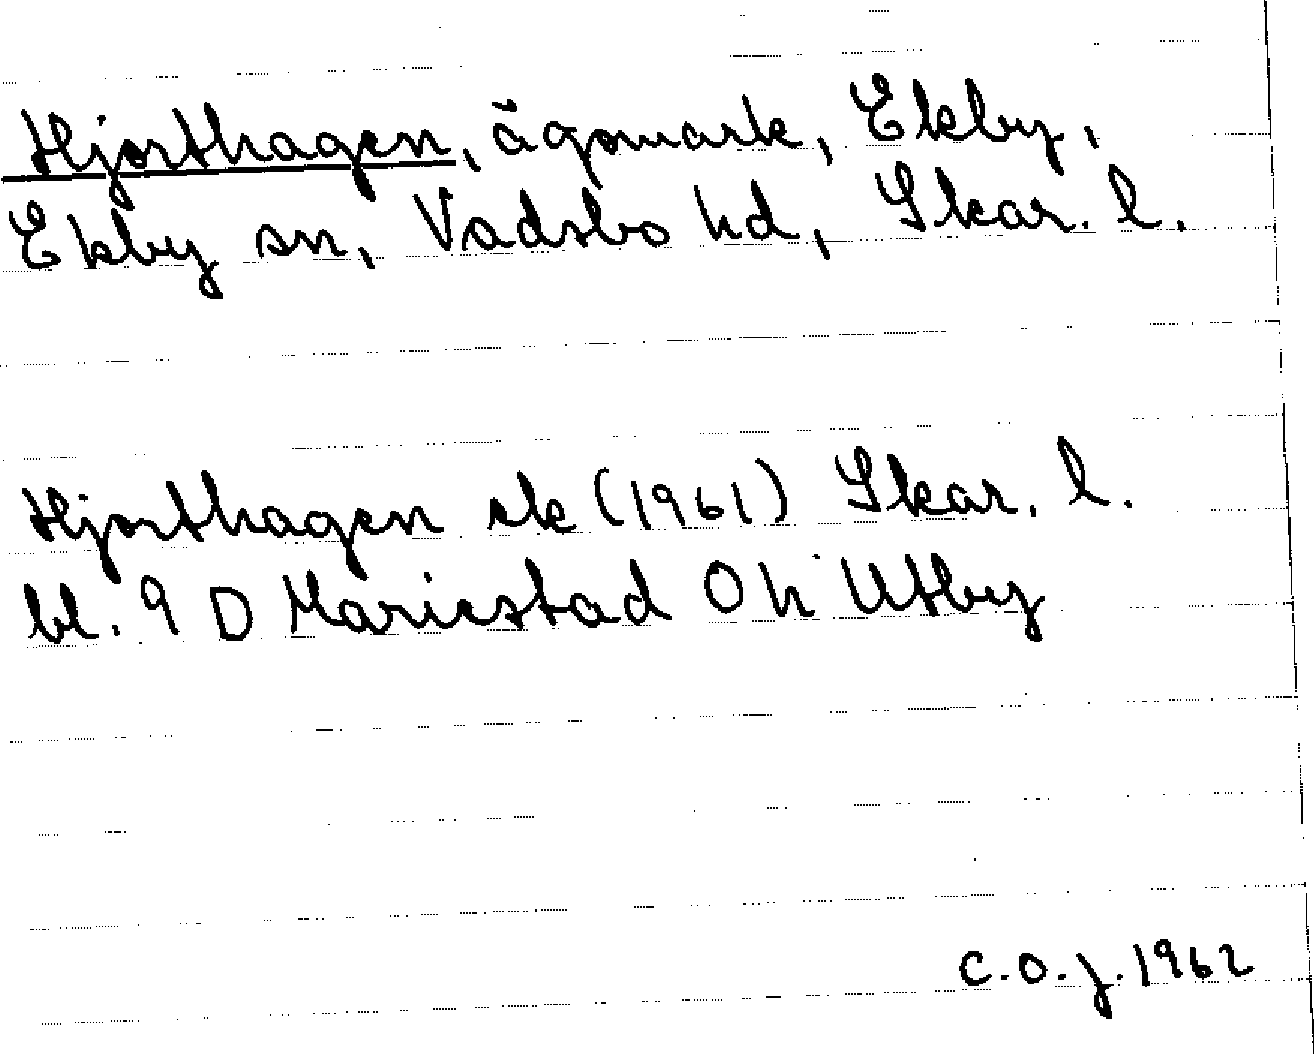 Hjorthagen, ägomark, Ekby,
Ekby sn, Vadsbo hd, Skar. l.
Hjorthagen ek (1961) Skar. l.
bl. 9 D Mariestad Oh Utby
C.O.J. 1962